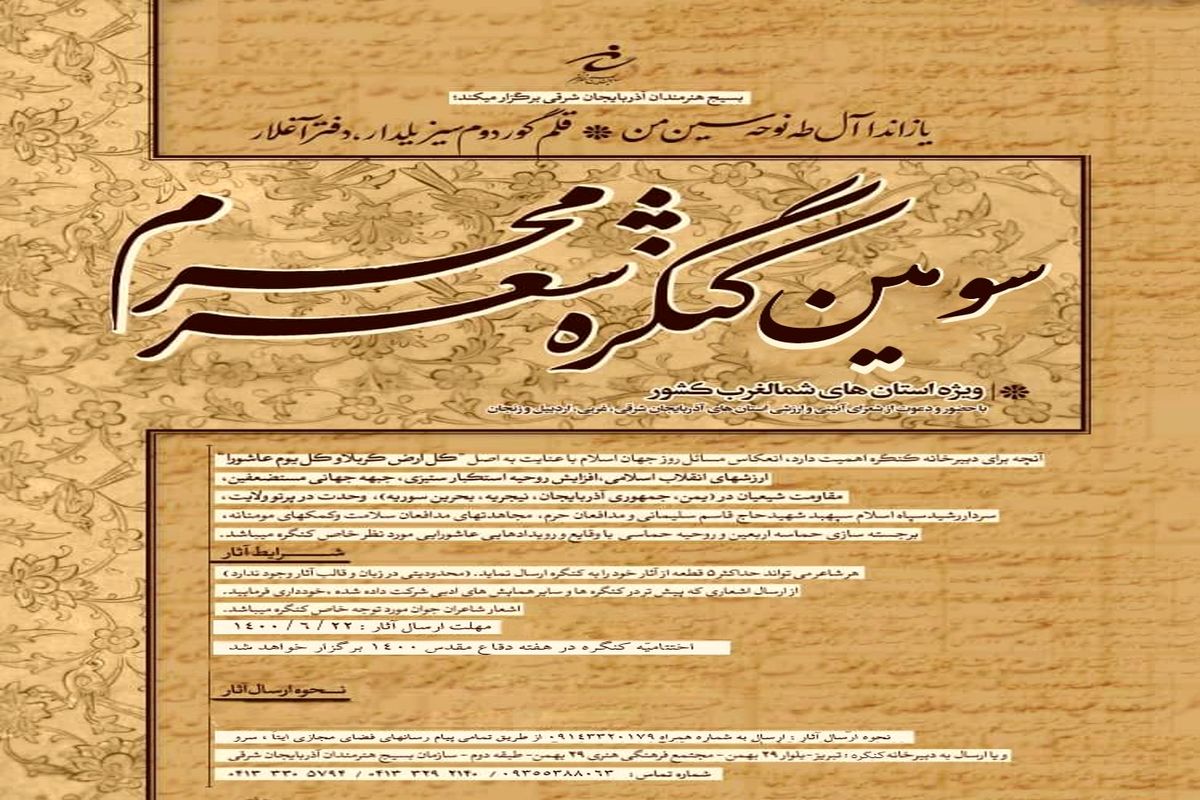 بسیج هنرمندان آذربایجان شرقی برگزار میکند؛
یازاندا آل طه نوحه سین من ❋ قلم گوردوم سیزیلدار، دفتر آغلار
سومین کنگره شعر محرم
ویژه استان های شمالغرب کشور
با حضور و دعوت از شعرای آئینی و ارزشی استان های آذربایجان شرقی، غربی، اردبیل و زنجان
آنچه برای دبیرخانه کنگره اهمیت دارد، انعکاس مسائل روز جهان اسلام با عنایت به اصل "کل ارض کربلا و کل یوم عاشورا"
ارزشهای انقلاب اسلامی، افزایش روحیه استکبار ستیزی، جبهه جهانی مستضعفین،
مقاومت شیعیان در (یمن، جمهوری آذربایجان، نیجریه، بحرین سوریه)، وحدت در پرتو ولایت،
سردار رشید سپاه اسلام سپهبد شهید حاج قاسم سلیمانی و مدافعان حرم، مجاهدتهای مدافعان سلامت وکمکهای مومنانه،
برجسته سازی حماسه اربعین و روحیه حماسی با وقایع و رویدادهایی عاشورایی مورد نظر خاص کنگره میباشد.
شرایط آثار
هر شاعر می تواند حداکثر ۵ قطعه از آثار خود را به کنگره ارسال نماید. (محدودیتی در زبان و قالب آثار وجود ندارد)
از ارسال اشعاری که پیش تر در کنگره ها و سایر همایش های ادبی شرکت داده شده، خودداری فرمایید.
اشعار شاعران جوان مورد توجه خاص کنگره میباشد.
مهلت ارسال آثار : ۲۲ / ۶ / ۱۴۰۰
اختتامیّه کنگره در هفته دفاع مقدس ۱۴۰۰ برگزار خواهد شد
نحوه ارسال آثار
نحوه ارسال آثار : ارسال به شماره همراه ۰۹۱۴۳۳۲۰۱۷۹ از طریق تمامی پیام رسانهای فضای مجازی ایتا ، سرو
و یا ارسال به دبیرخانه کنگره : تبریز- بلوار ۲۹ بهمن - مجتمع فرهنگی هنری ۲۹ بهمن- طبقه دوم - سازمان بسیج هنرمندان آذربایجان شرقی
شماره تماس: ۰۹۳۵۵۳۸۸۰۶۳ / ۰۴۱۳ ۳۲۹ ۲۱۴۰ / ۰۴۱۳ ۳۳۰ ۵۷۹۴